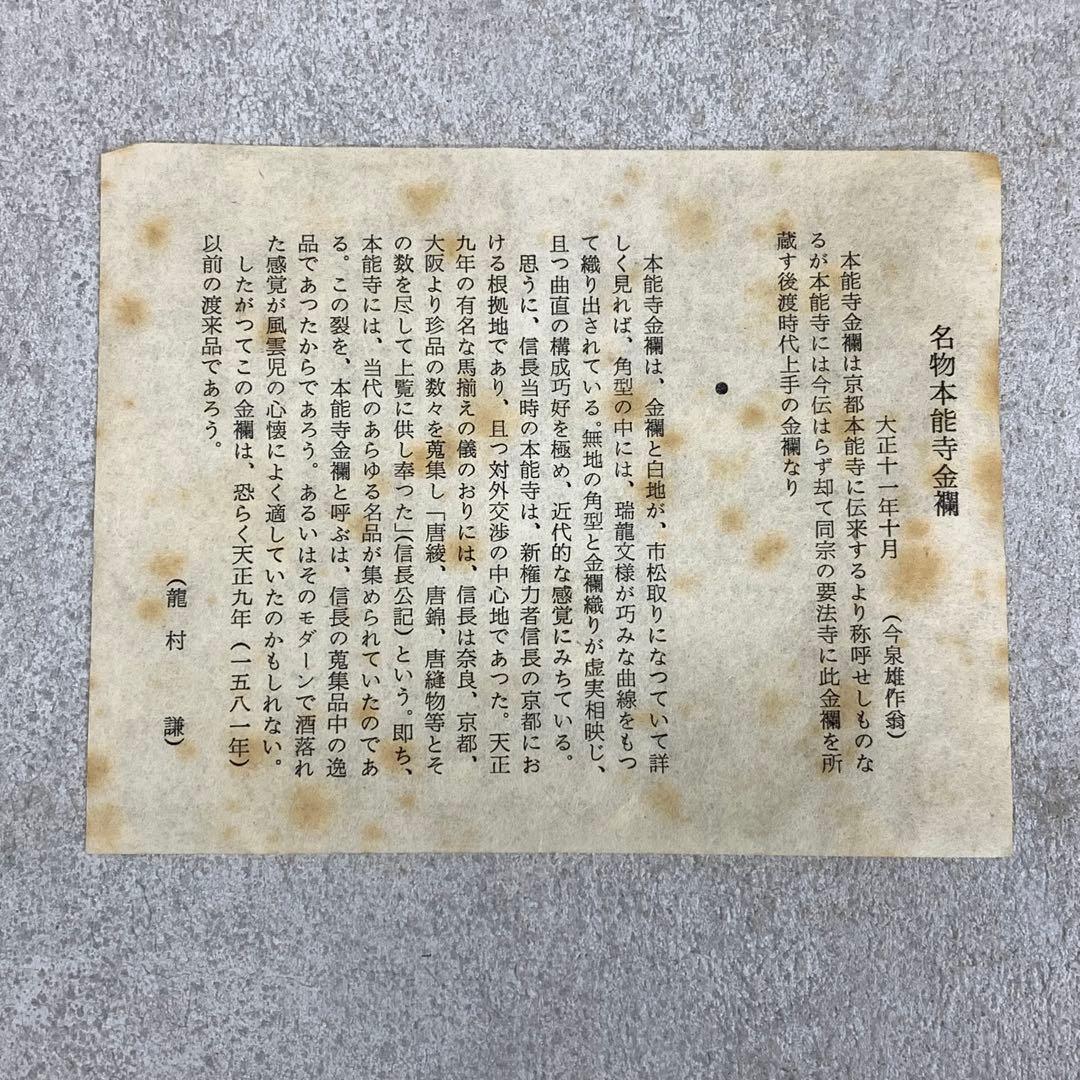 名物本能寺金襴
大正十一年十月　（今泉雄作翁）
本能寺金襴は京都本能寺に伝来するより称呼せしものな
るが本能寺には今伝はらず却て同宗の要法寺に此金襴を所
蔵す後渡時代上手の金襴なり
●
本能寺金襴は、金襴と白地が、市松取りになつていて詳
しく見れば、角型の中には、瑞龍文様が巧みな曲線をもつ
て織り出されている。無地の角型と金襴織りが虚実相映じ、
且つ曲直の構成巧好を極め、近代的な感覚にみちている。
思うに、信長当時の本能寺は、新権力者信長の京都にお
ける根拠地であり、且つ対外交渉の中心地であつた。天正
九年の有名な馬揃えの儀のおりには、信長は奈良、京都、
大阪より珍品の数々を蒐集し「唐綾、唐錦、唐縫物等とそ
の数を尽して上覧に供し奉つた」（信長公記）という。即ち、
本能寺には、当代のあらゆる名品が集められていたのであ
る。この裂を、本能寺金襴と呼ぶは、信長の蒐集品中の逸
品であつたからであろう。あるいはそのモダーンで洒落れ
た感覚が風雲児の心懐によく適していたのかもしれない。
したがつてこの金襴は、恐らく天正九年（一五八一年）
以前の渡来品であろう。
（龍村　謙）